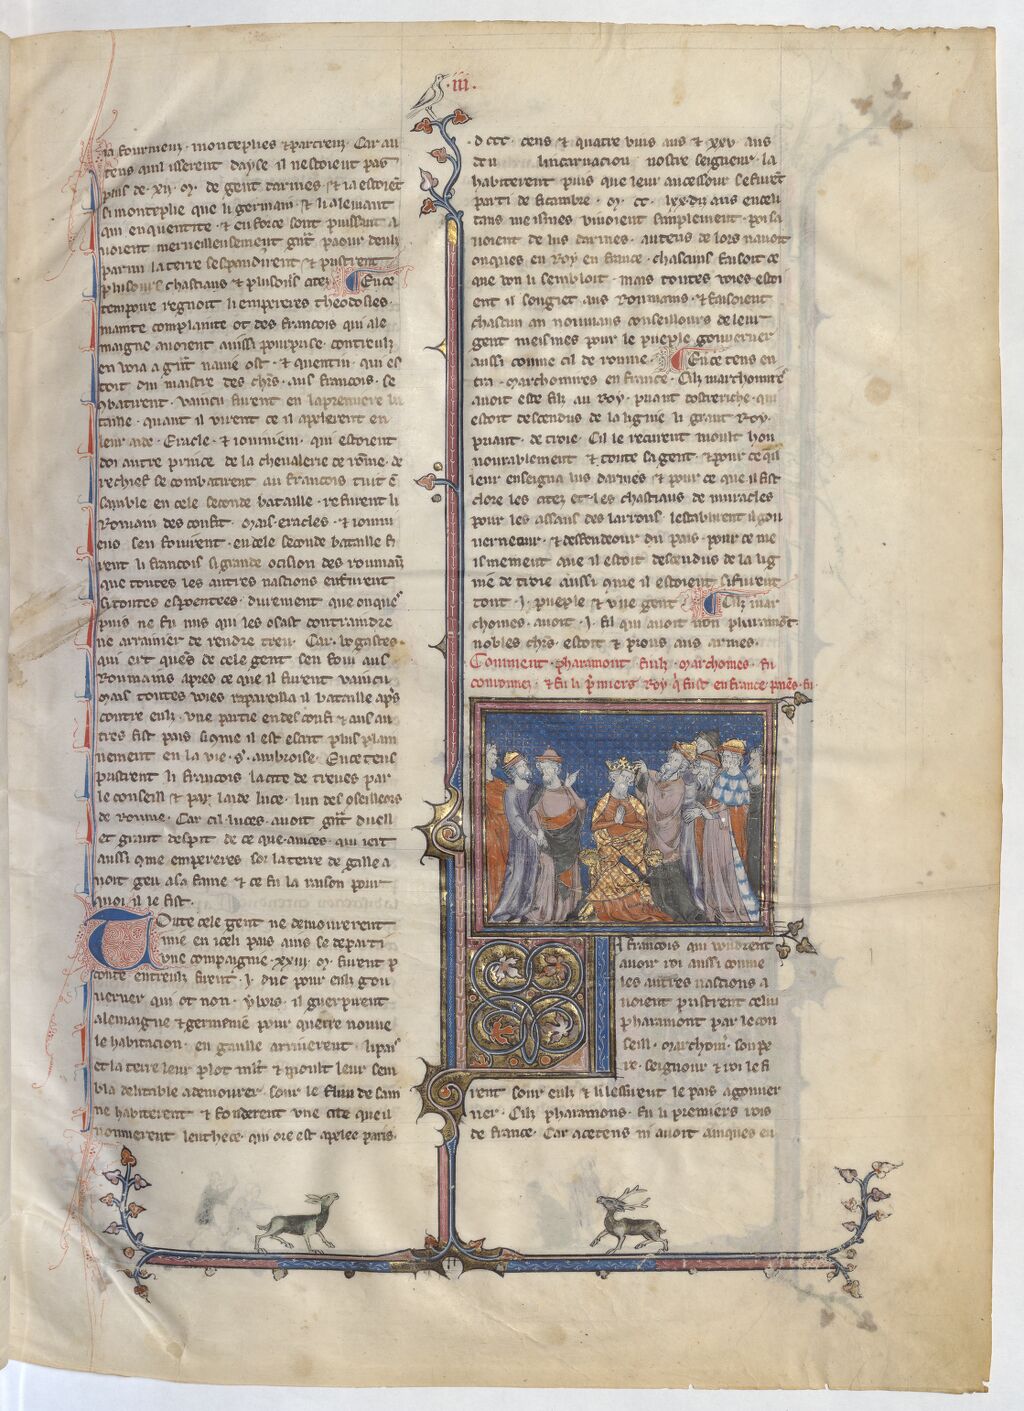 .iii.
fourmenz monteplies & parcreuz. Car au
tens quil issirent dayse il nestoient pas
plus de .xii. m. de gent darmes & ia estoiēt
si monteplie que li germain & li alemant
qui en quentite & en force sont puissant a
uoient merueilleusement grāt paour deulz
parmi la terre sespandirent & pristrent
plusours chastiaus & plusours citez ¶ En ce
tempoire regnoit li empereres theodosies.
mainte complainte ot des francois qui ale
maigne auoient aussi pourprise. contreulz
en uoia a grāt nauie ost. & quentin. qui es
toit dui maistre des chrs. aus francois. se
cbatirent. uaincu furent en la premiere ba
taille. quant il uirent ce il apelerent en
leur aide. Eracle. & iouinien. qui estoient
doi autre prince de la cheualerie de rōme. de
rechief se combatirent au francois tuit ē
samble en cele seconde bataille. refurent li
Romain desconfit. Mais eracles. & iouini
ens sen fouirent. en cele seconde bataille fi
rent li francois si grande ocision des roumaīs
que toutes les autres nascions en furent
si toutes espoentees. durement que onques
puis ne fu nus qui les osast contraindre
ne arrainier de rendre treu. Car. logastes.
qui ert ques de cele gent sen foui aus
Roumains apres ce que il furent uaincu
Mais toutes uoies rapareilla il bataille aps
contre eulz. une partie en desconfi & aus au
tres fist pais si come il est escrit plus plain
nement en la uie .s. ambroise. En ce tens
pristrent li francois la cite de treues par
le conseill & par laide luce. lun des oseilleors
de roume. Car cil luces. auoit grāt duell
et grant despit de ce que auices qui iert
aussi come empereres sor la terre de galle a
uoit geu a sa fame & ce fu la raison pour
quoi il le fist.
Toute cele gent ne demourerent
mie en icel pais ains se departi
une compaignie .xxiii. m. furent p
conte entreulz furent .i. duc pour eulz gou
uerner qui ot non. ybors. il guerpirent
alemaigne & germenie pour querre nouue
le habitacion. en gaulle arriuerent. li pais
et la terre leur plot mlt & moult leur sem
bla delitable a demourer. sour le flun de sain
ne habiterent & fonderent une cite que il
nommerent leuthece. qui ore est apelee paris.
.d ccc. cens & quatre uins ans & xxv. ans
deu lincarnacion nostre seigneur. la
habiterent puis que leur ancessour se furēt
parti de sicambre .m. cc. lxxdix ans en celi
tans meismes uiuoient simplement. poi sa
uoient de lus darmes. au tens de lors nauoit
onques eu Roy en france. chascuns faisoit ce
que bon li sembloit. mais toutes uoies estoi
ent il sougiet aus Roumains. & faisoient
chascun an nouuiaus conseillours de leur
gent meismes pour le pueple gouuerner
aussi comme cil de romme. ¶ En ce tens en
tra. Marchomires en france. Cilz marchomires
auoit este filz au Roy. priant dosteriche. qui
estoit descendus de la lignie li grant Roy.
priant. de troie. Cil le recurent moult hon
nourablement & toute sa gent. & pour ce qil
leur enseigna lus darmes & pour ce que il fist
clore les citez et les chastiaus de muracles
pour les assaus des larrons. lestablirent il gou
uerneeur. & deffendeour du pais. pour ce me
ismement que il estoit descendus de la lig
nie de troie aussi come il estoient si furent
tout .i. pueple & une gent ¶ Cilz mar
chomes. auoit .i. fil qui auoit non pharamōt
nobles chrs. estoit & prous aus armes.
Comment. pharamont. fiulz. Marchomes. fu
couronnez. & fu li pmiers Roy q fust en france.
Li francois qui uoudrent
auoir roi aussi comme
les autres nascions a
uoient pristrent celui
pharamont par le con
seill. Marchom. son pe
re. seignour & roi le fi
rent sour eulz & li lessirent le pais a gouuer
ner. Cilz pharamons. fu li premiers rois
de france. Car a ce tens ni auoit ainques eu